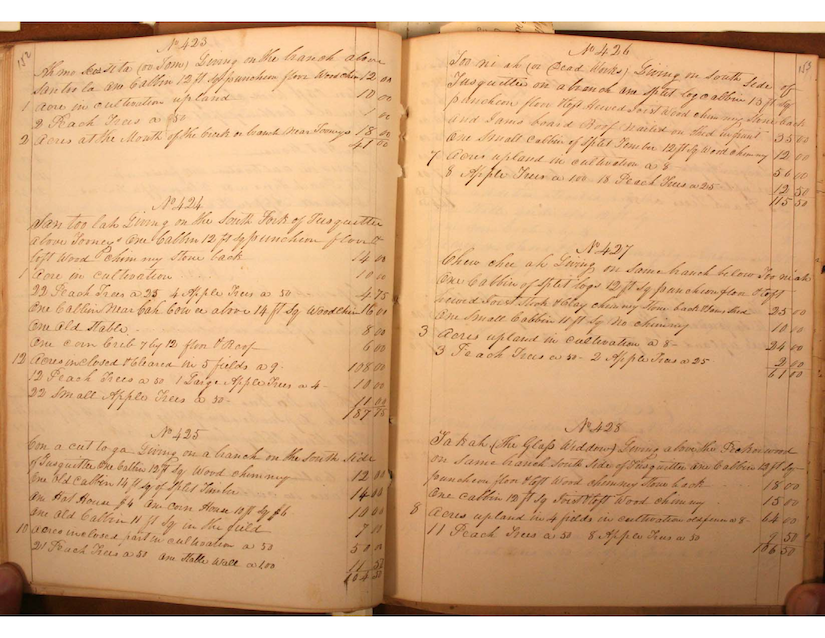 152
No 423
Ah mo (or Tom) Living on the branch above
San too la One Cabbin 12 ft Sq puncheon floor Wood Chim 12 00
1 acre in cultivation upland 10 00
2 Peach Trees a 50 1 00
2 Acres at the Mouth of the Creek or branch near Tooneys 18 00
41 00
No 424
San too lah Living on the South Fork of Tusquittee
above Tooneys One Cabbin 12 ft Sq puncheon floor &
loft Wood Chimney Stone back 14 00
1 Acre in cultivation 10 00
22 Peach Trees a 25 4 Apple Trees a 50 4 75
One Cabbin Near Cah Cow a above 14 ft Sq Wood Chim 16 00
One Old Stable 8 00
One corn Crib 7 by 12 floor & Roof 6 00
12 Acres inclosed & Cleared in 5 fields a 9 108 00
12 Peach Trees a 50 1 Large Apple Trees a 4 10 00
22 Small Apple Trees a 50 11 00
187 75
No 425
Con a cut to ga Living on a branch on the South Side
of Tusquittee One Cabbin 12 ft Sq Wood chimney 12 00
One Old Cabbin 14 ft Sq of Split Timber 14 00
One Hot House $4 One Corn House 10 ft Sq $6 10 00
One old Cabbin 11 ft Sq in the field 7 00
10 Acres inclosed part in cultivation a 50 50 00
21 Peach Trees a 50 One Stable Walls a 100 11 50
104 50
153
No 426
Too ni ah (or Dead Works) Living on South Side of
Tusquittee on a branch one Split log cabbin 15 ft Sq
puncheon floor & loft hewed Joist Wood chimney Stone back
and Jams board Roof nailed on Shed in front 35 00
One Small Cabbin of Split Timber 12 ft Sq Wood Chimney 12 00
7 Acres upland in cultivation a 8 56 00
8 Apple Trees a 100 18 Peach Trees a 25 12 50
115 50
No 427
Chew chee ah Living on same branch below Too ni ah
One Cabbin of Split Logs 12 ft Sq puncheon floor & loft
hewed Joist Stick & Clay chimney Stone back 25 00
One Small Cabbin 11 ft Sq No chimney 10 00
3 Acres upland in cultivation a 8 24 00
3 Peach Trees a 50 2 Apple Trees a 25 2 00
61 00
No 428
Ta kah (The Glass Widdow) Living above the Peckerwood
on same branch South Side of Tusquittee One Cabbin 12 ft Sq
puncheon floor & loft Wood chimney Stone back 18 00
One cabbin 12 ft Sq Joist & loft Wood chimney 15 00
8 Acres upland in 4 fields in cultivation old fence a 8 64 00
11 Peach Trees a 50 8 Apple Trees a 50 9 50
106 50